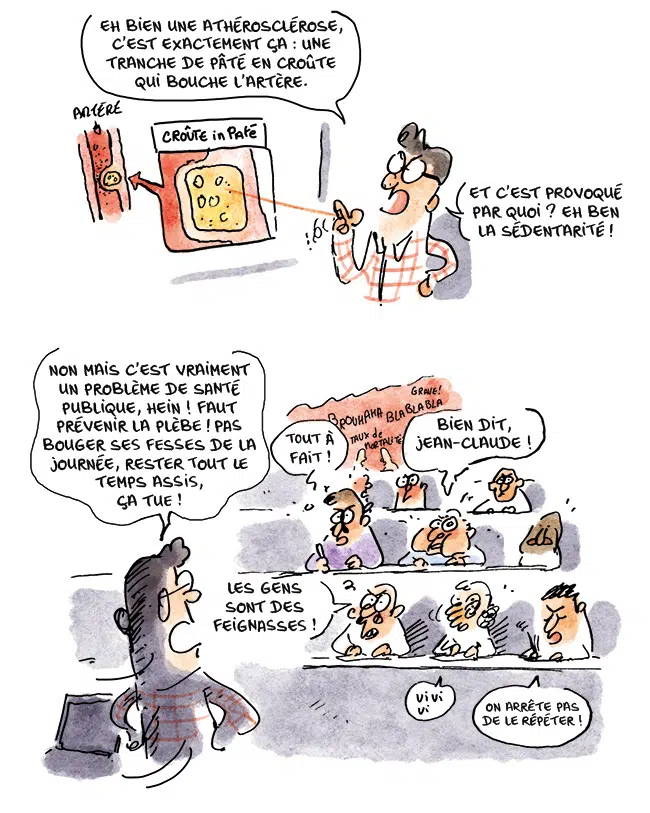 EH BIEN UNE ATHÉROSCLÉROSE,
C'EST EXACTEMENT ÇA : UNE
TRANCHE DE PÂTÉ EN CROÛTE
QUI BOUCHE L'ARTÈRE.
ARTÈRE
CROÛTE in PATÉ
ET C'EST PROVOQUÉ
PAR QUOI ? EH BEN
LA SÉDENTARITÉ !
NON MAIS C'EST VRAIMENT
UN PROBLÈME DE SANTÉ
PUBLIQUE, HEIN ! FAUT
PRÉVENIR LA PLÈBE ! PAS
BOUGER SES FESSES DE LA
JOURNÉE, RESTER TOUT LE
TEMPS ASSIS,
ÇA TUE !
GRAVE!
BROUHAHA BLA BLA BLA
TAUX de
MORTALITÉ
TOUT À
FAIT !
BIEN DIT,
JEAN-CLAUDE !
LES GENS
SONT DES
FEIGNASSES !
vi vi
vi
ON ARRÊTE PAS
DE LE RÉPÉTER !